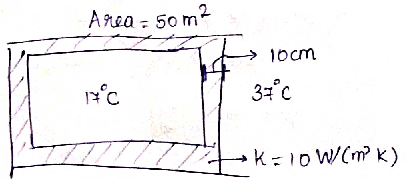 Area = 50m²
10cm
17°C
37°C
K = 10 W/(m³ K)